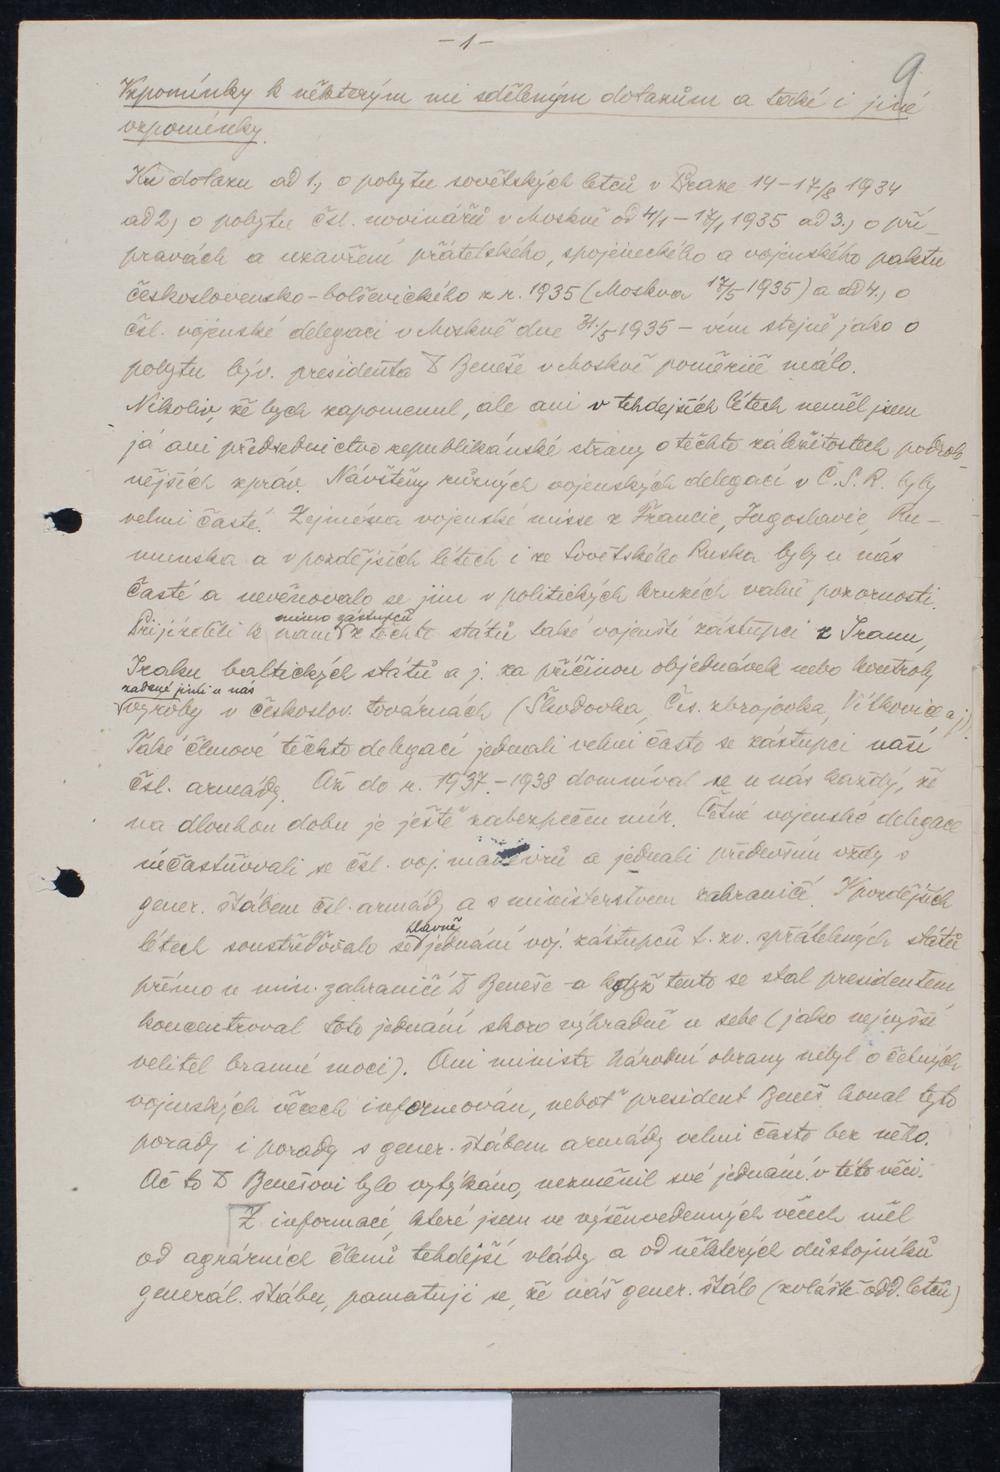 - 1 -
9
Vzpomínky k některým mi sděleným dotazům a také i jiné
vzpomínky.
Ku dotazu ad 1., o pobytu sovětských letců v Praze 14-17/8 1934
ad 2, o pobytu čsl. novinářů v Moskvě od 4/1 - 17/1 1935 ad 3., o pří-
pravách a uzavření přátelského, spojeneckého a vojenského paktu
československo-bolševického z r. 1935 (Moskva 17/5 1935) a ad 4., o
čsl. vojenské delegaci v Moskvě dne 31./5 1935 - vím stejně jako o
pobytu býv. presidenta D Beneše v Moskvě poměrně málo.
Nikoliv, že bych zapomenul, ale ani v tehdejších létech neměl jsem
já ani předsednictvo republikánské strany o těchto záležitostech podrob-
nějších zpráv. Návštěvy různých vojenských delegací v Č.S.R. byly
velmi časté. Zejména vojenské misse z Francie, Jugoslavie, Ru-
munska a v pozdějších létech i ze Sovětského Ruska byly u nás
časté a nevěnovalo se jim v politických kruzích valné pozornosti.
mimo zástupců
Přijížděli k nám z těchto států také vojenští zástupci z Iranu,
Iraku baltických států a j. za příčinou objednávek nebo kontroly
zadané jimi u nás
výroby v českoslov. továrnách (Škodovka, Čes. zbrojovka, Vítkovice a j.)
Také členové těchto delegací jednali velmi často se zástupci naší
čsl. armády. Až do r. 1937.-1938 domníval se u nás každý, že
na dlouhou dobu je ještě zabezpečen mír. Četné vojenské delegace
účastňovali se čsl. voj. manévrů a jednali především vždy s
gener. štábem čsl. armády a s ministerstvem zahraničí. V pozdějších
hlavně
létech soustřeďovalo se jednání voj. zástupců t. zv. spřátelených států
přímo u min. zahraničí D Beneše a když tento se stal presidentem
koncentroval toto jednání skoro výhradně u sebe (jako nejvyšší
velitel branné moci). Ani ministr Národní obrany nebyl o četných
vojenských věcech informován, neboť president Beneš konal tyto
porady i porady s gener. štábem armády velmi často bez něho.
Ač to D Benešovi bylo vytýkáno, nezměnil své jednání v této věci.
Z informací, které jsem ve výšeuvedenných věcech měl
od agrárních členů tehdejší vlády a od některých důstojníků
generál. štábu, pamatuji se, že náš gener. štáb (zvláště odd. letců)